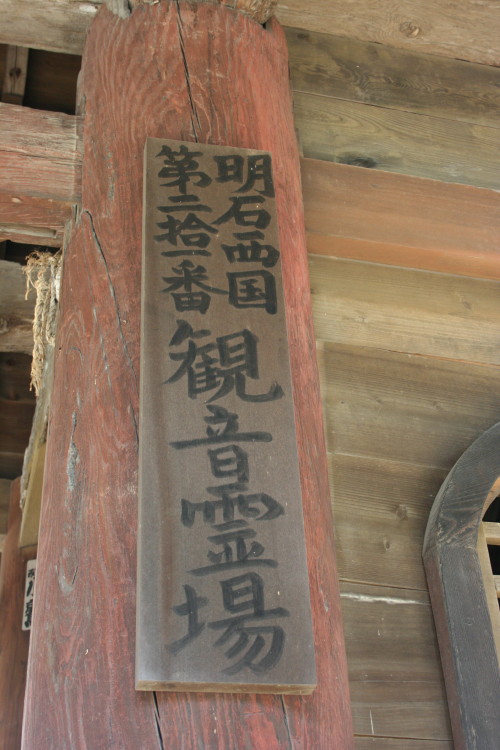 明石西国
第二拾一番
観音霊場